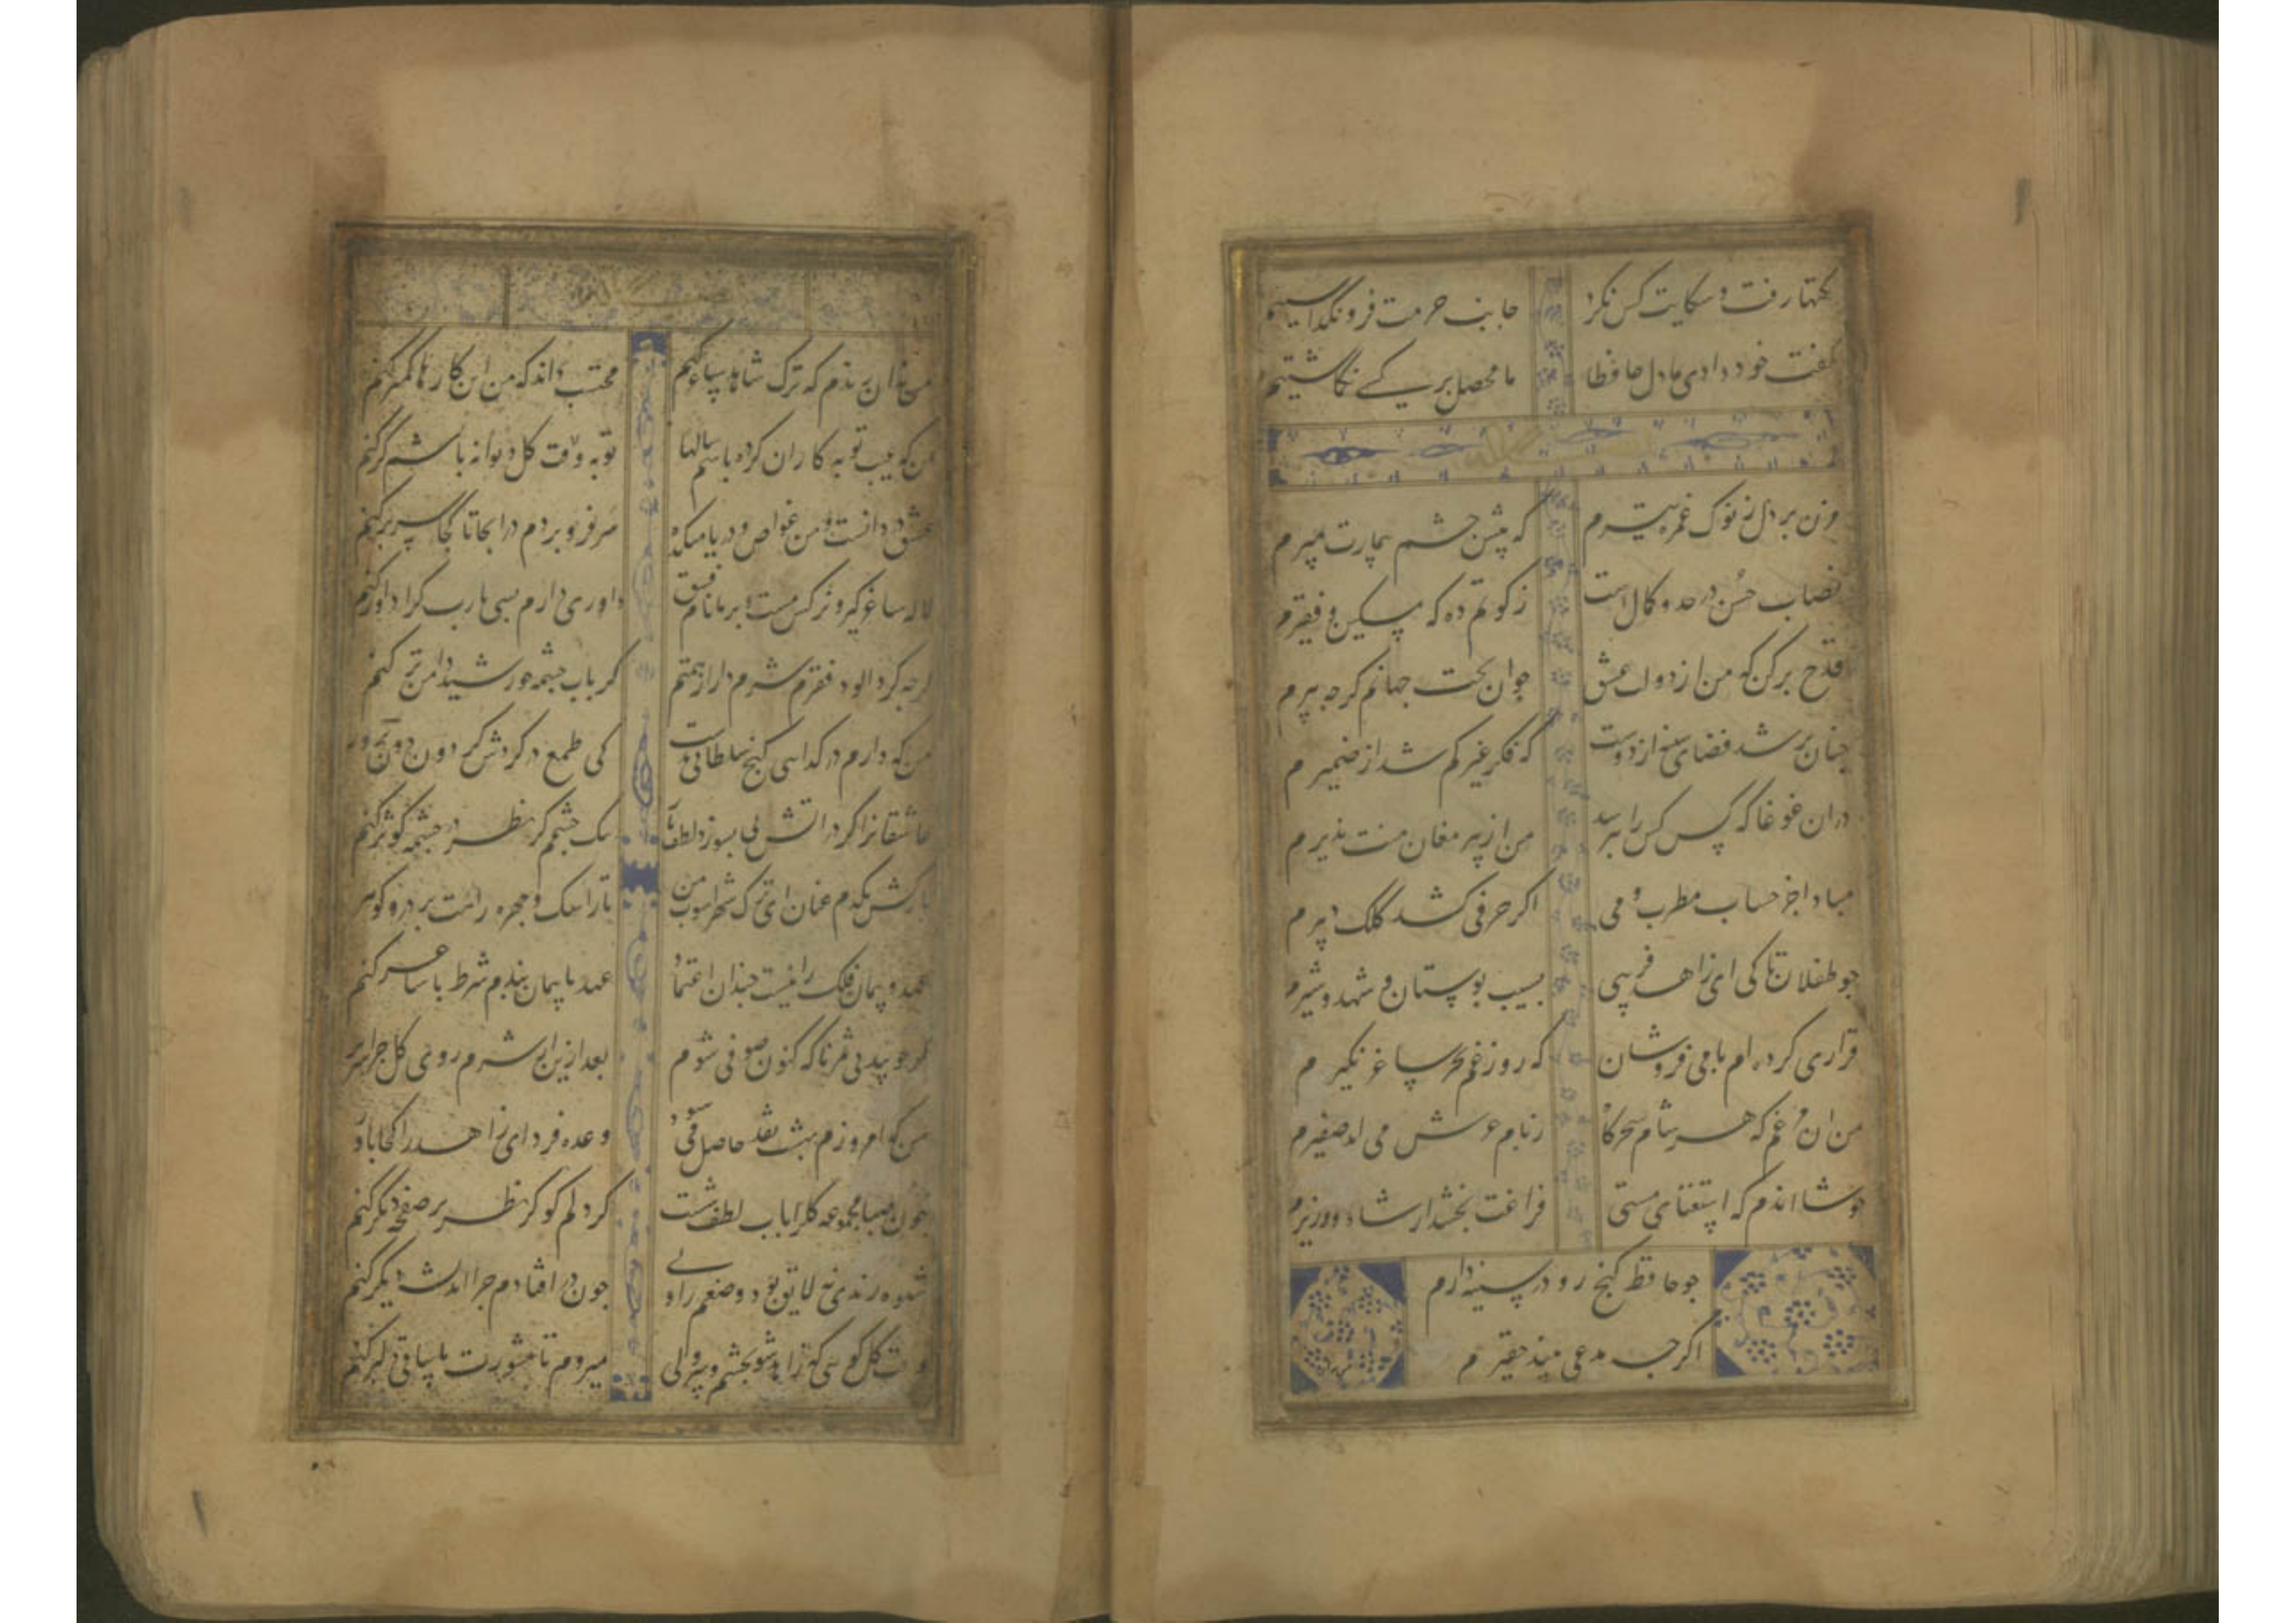 نکتها رفت و شکایت کس نکرد جانب حرمت فرو نگذاشتیم
گفت خود دادی بما دل حافظا ما محصل بر کسے نگماشتیم
مزن بر دل ز نوک غمزه تیرم که پیش چشم بیمارت بمیرم
نصاب حسن در حد کمال است زکوتم ده که مسکین و فقیرم
قدح پر کن که من از دولت عشق جوان بخت جهانم کرجه پیرم
جنان پر شد فضای سینه از دوست که فکر غیر کم شد از ضمیرم
دران غوغا که کس کس را نپرسد من از پیر مغان منت پذیرم
مبادا جز حساب مطرب و می اکر حرفی کشد کلک دبیرم
جو طفلان تا کی ای زاهد فریبی بسیب بوستان و شهد و شیرم
قراری کرده ام با می فروشان که روز غم بجز ساغر نکیرم
من ان مرغم که هر شام و سحرکاه ز بام عرش می اید صفیرم
خوشا اندم که استغنای مستی فراغت بخشد از شاه و وزیرم
جو حافظ کنج او در سینه دارم
اکرجه مدعی بیند حقیرم
من نه ان رندم که ترک شاهد و ساغر کنم محتسب داند که من این کارها کمتر کنم
من که عیب توبه کاران کرده باشم سالها توبه وقت کل دیوانه باشم کر کنم
عشق دردانست و من غواص و دریا میکده سر فرو بردم در انجا تا کجا سر بر کنم
لاله ساغر کیر و نرکس مست و بر ما نام فسق داوری دارم بسی یارب کرا داور کنم
کرجه کرد الود فقرم شرم دار از همتم کر باب جشمه خورشید دامن تر کنم
من که دارم در کدایی کنج سلطانی بدست کی طمع در کردش کردون دون پرور
عاشقانرا کر در اتش می بسوزد لطف یار تنک جشمم کر نظر در جشمه کوثر کنم
باز کش یکدم عنان ای ترک شهراشوب من تا ز اشک و جهره راهت پر در و کوهر
عهد و پیمان فلک را نیست جندان اعتماد عهد با پیمان بندم شرط با ساغر کنم
بعد ازین از شرم روی کل
من که امروزم بهشت نقد حاصل میشود وعده فردای زاهد را کجا باور
جون صبا مجموعه کل را باب لطف شست کر دلم کو کر نظر بر صفحه دیکر کنم
شیوه رندی نه لایق بود وضعم را ولے جون در افتادم جرا اندیشه دیکر کنم
وقت کل کویی که زاهد شو بجشم و سر ولی میروم تا مشورت با ساقی دلبر کنم